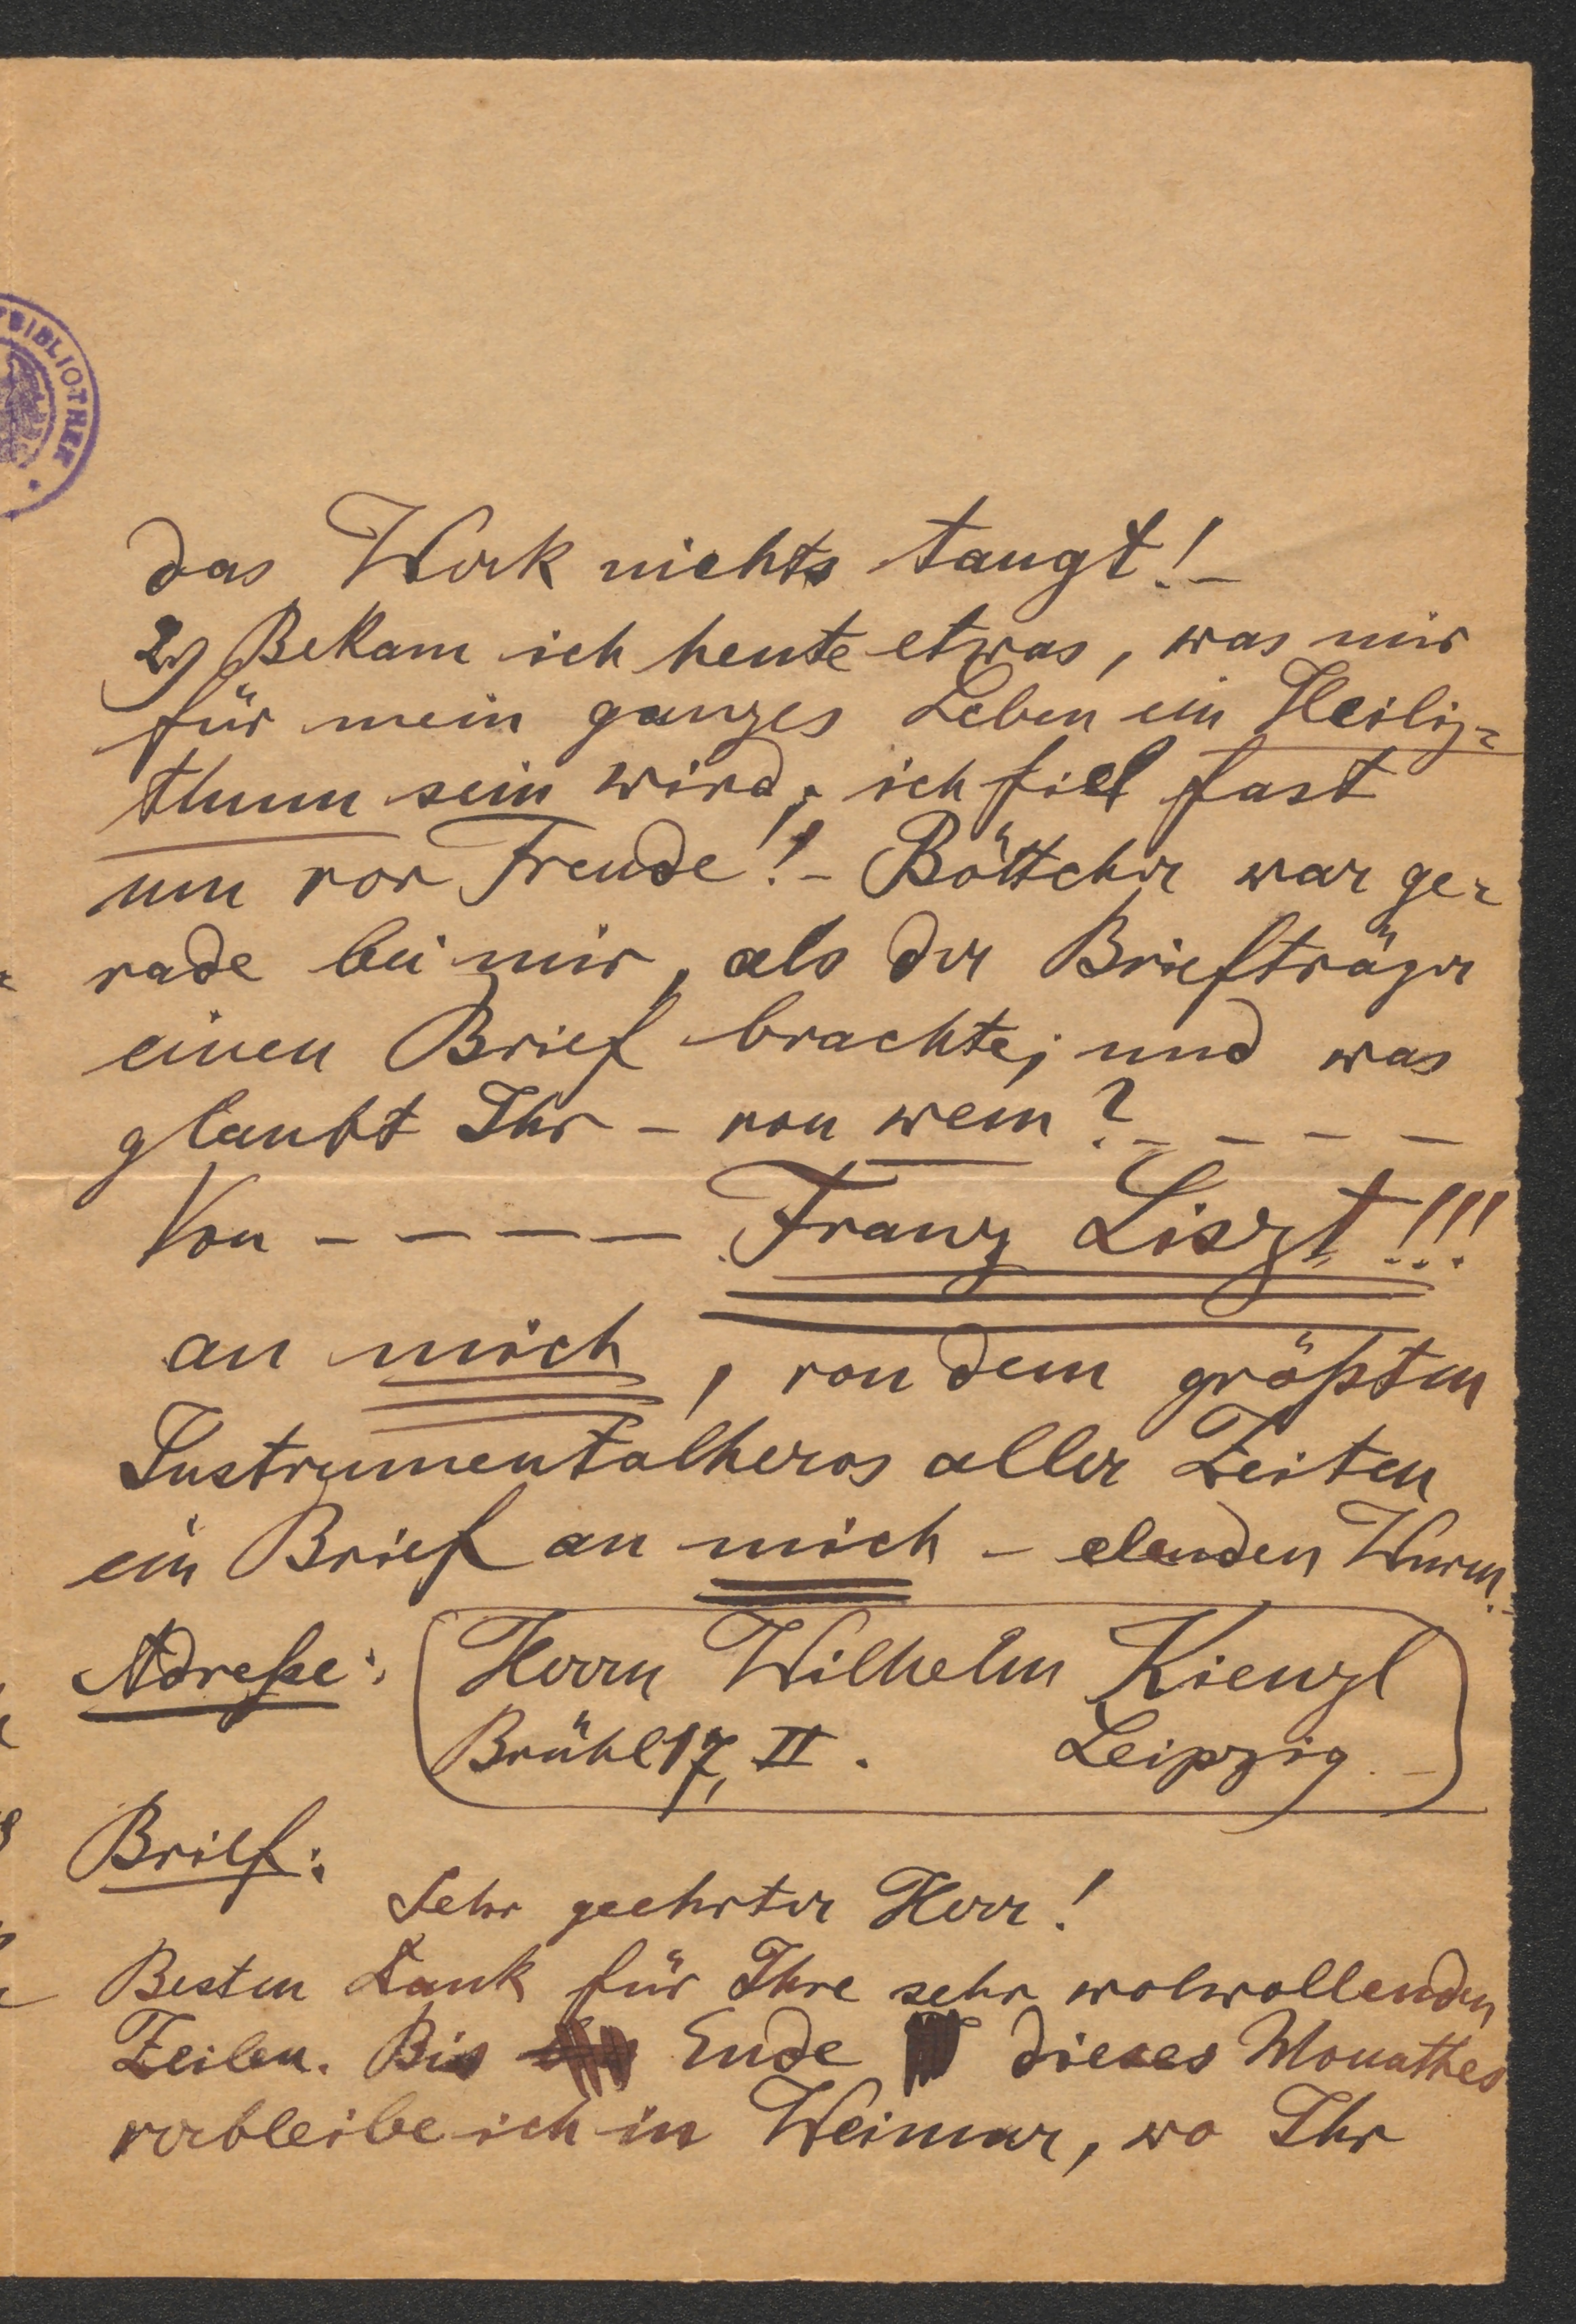 BIBLIOTHEK
das Werk nichts taugt! –
2) Bekam ich heute etwas, was mir
für mein ganzes Leben ein Heilig=
thum sein wird; ich fiel fast
um vor Freude! – Böttcher war ge=
rade bei mir, als der Briefträger
einen Brief brachte; und was
glaubt Ihr – von wem? – – – –
Von – – – – Franz Liszt!!!
an mich, von dem größten
Instrumentalheros aller Zeiten
ein Brief an mich – elenden Wurm. –
Adreße: Herrn Wilhelm Kienzl
Brühl 17, II. Leipzig. –
Brief:
Sehr geehrter Herr!
Besten Dank für Ihre sehr wolwollenden
Zeilen. Bis Ende dieses Monathes
verbleibe ich in Weimar, wo Ihr